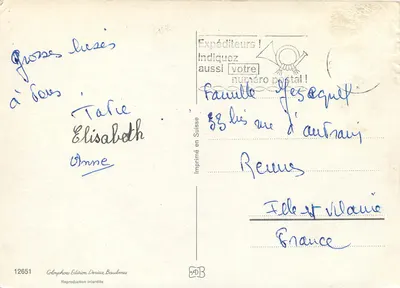 Grosses bises
à tous.
Tatie
Elisabeth
Anne
Expéditeurs !
Indiquez
aussi votre
numéro postal !
Famille
33 bis rue d'
Rennes
Ille et Vilaine
France
Imprimé en Suisse
12651
Reproduction interdite